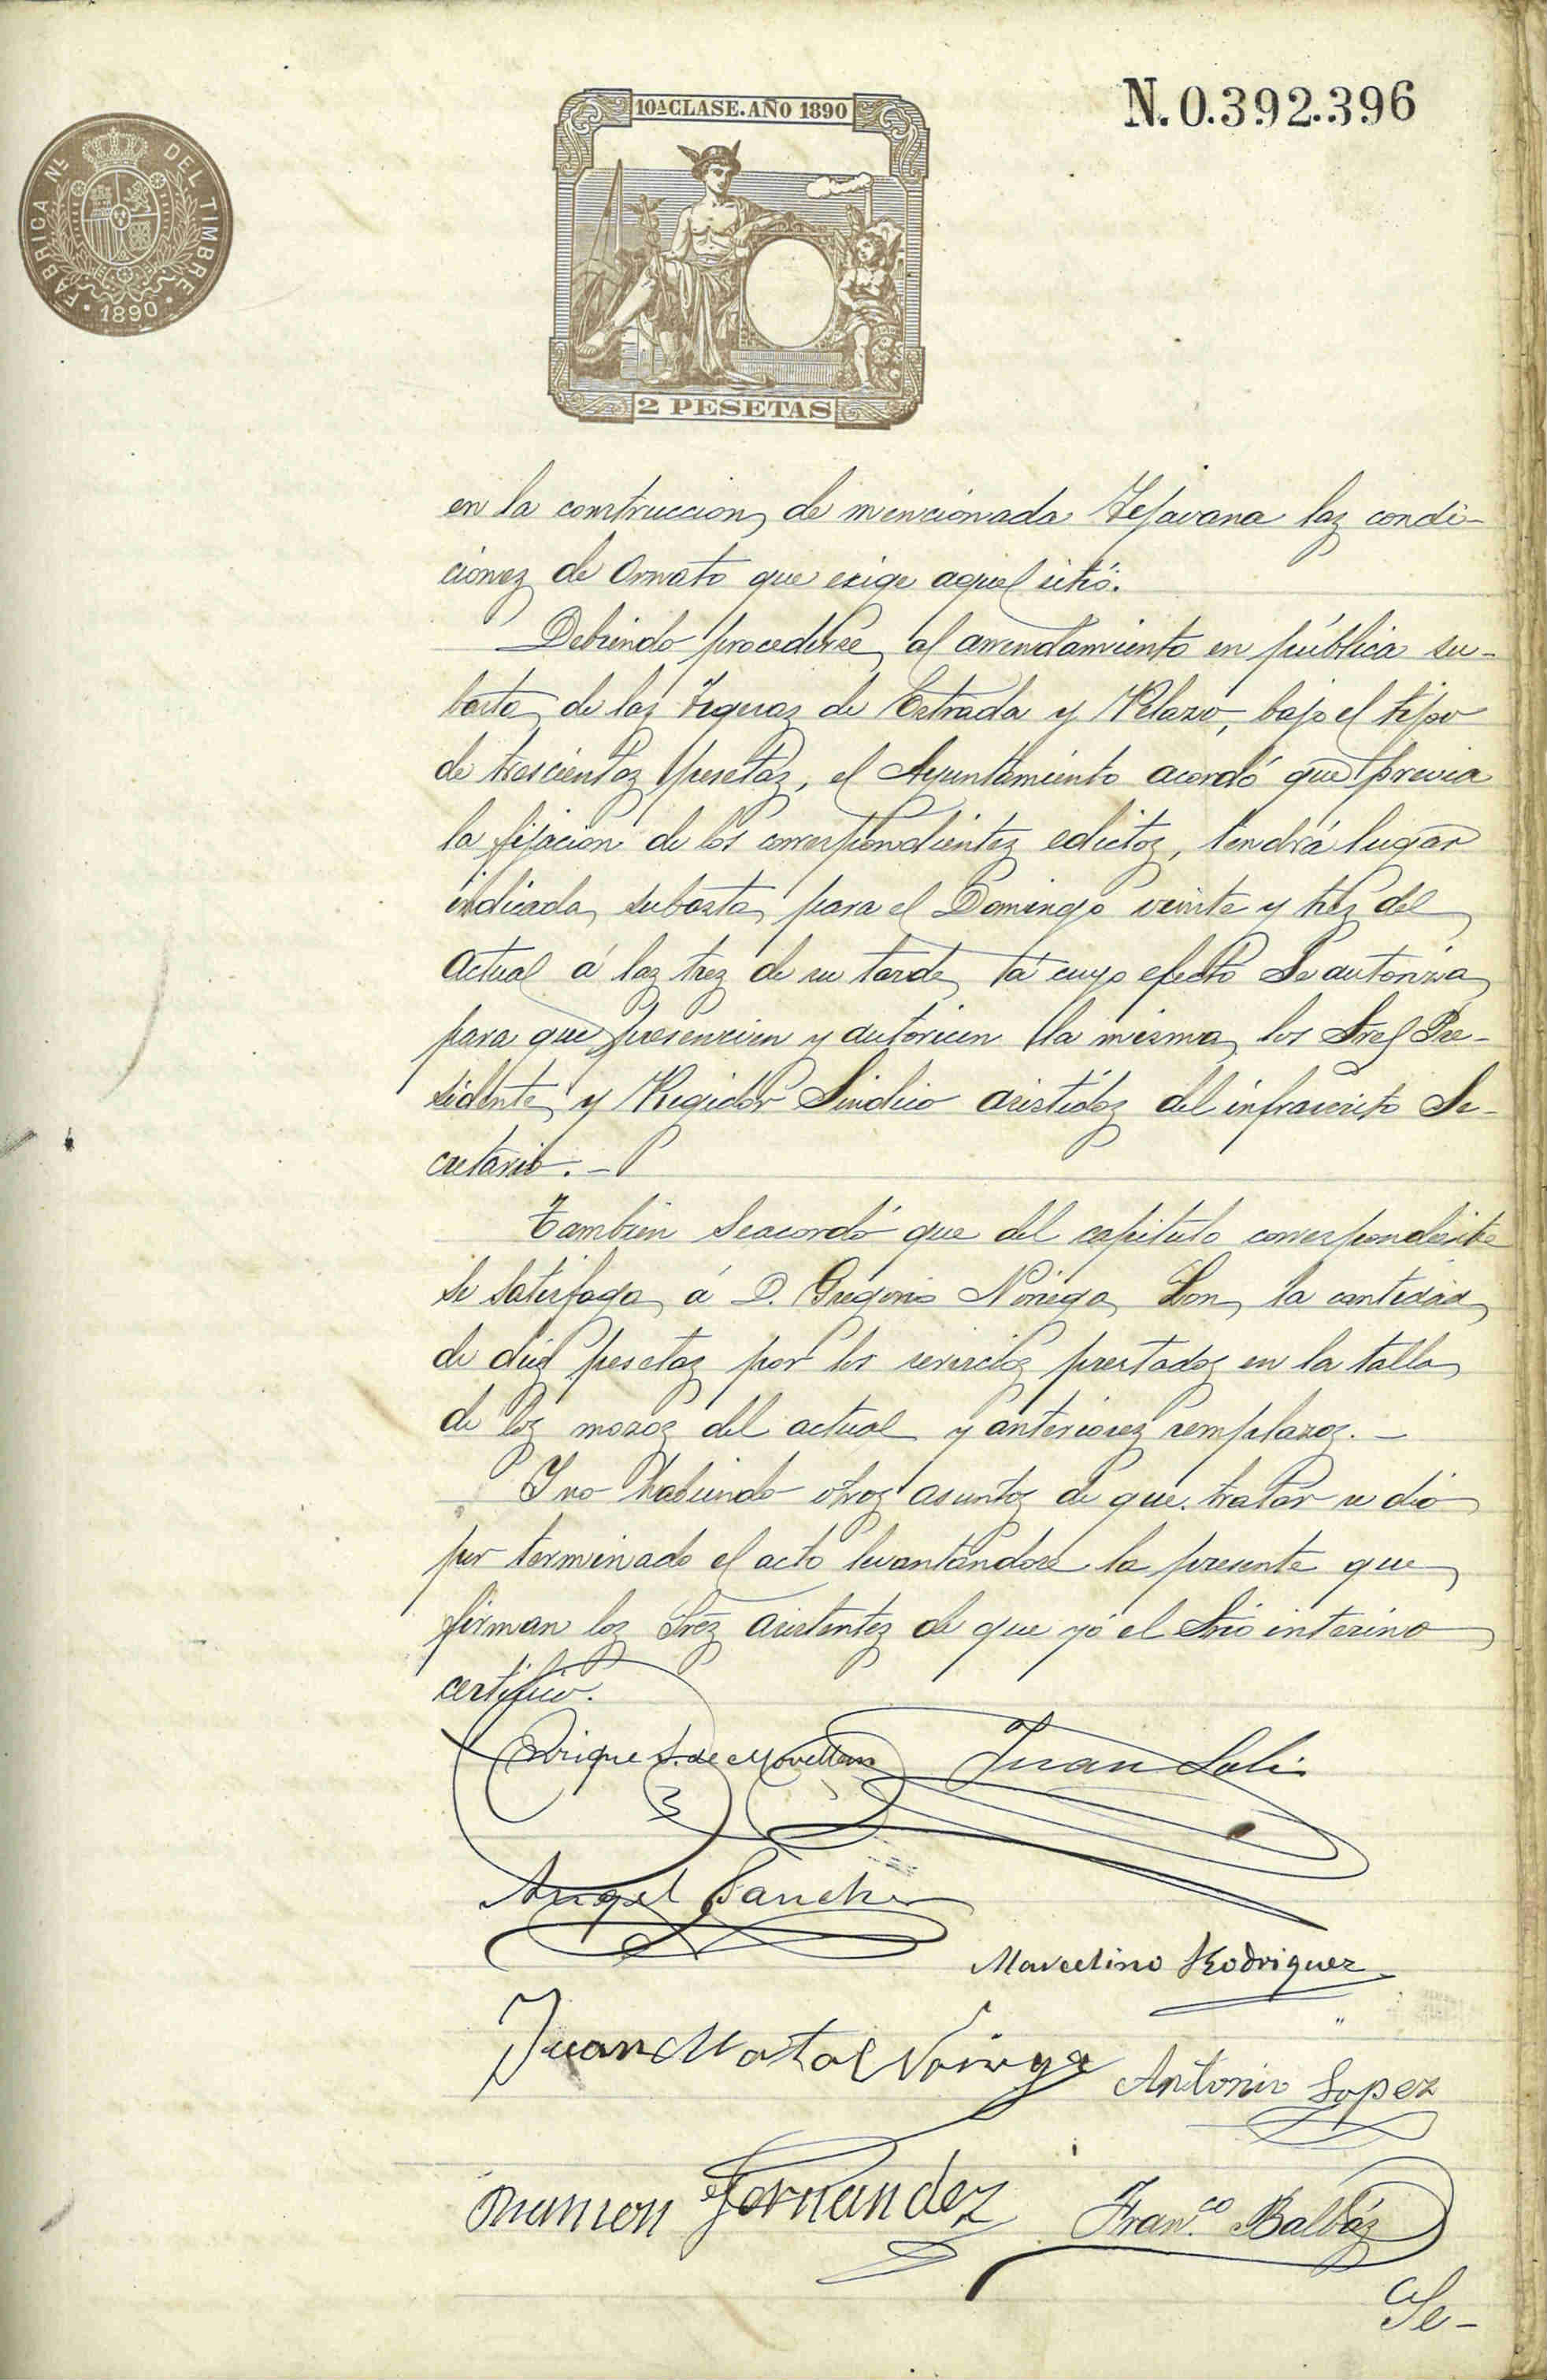 N. 0.392.396
10ª CLASE. AÑO 1890
FABRICA NL. DEL TIMBRE
1890
2 PESETAS
en la construccion de mencionada Tejavana las condi-
ciones de Ornato que exige aquel sitió.
Debiendo procederse al arrendamiento en pública su-
basta de las de Estrada y, bajo el tipo
de trescientas pesetas, el Ayuntamiento acordó que previa
la fijacion de los correspondientes edictos, tendrá lugar
indicada subasta para el Domingo veinte y tres del
actual á las tres de su tarde á cuyo efecto Se autoriza
para que presencien y autoricen la misma los Sres Pre-
sidente y Regidor Sindico asistidos del infrascrito Se-
cretario. -
Tambien Seacordó que del capitulo correspondiente
se satisfaga á D. Gregorio Noriega Son, la cantidad
de diez pesetas por los servicios prestados en la talla
de los mozos del actual y anteriores remplazos. -
Y no habiendo otros asuntos de que tratar se dió
por terminado el acto levantandose la presente que
firman los Sres asistentes de que yó el Srio interino
certifico.
Enrique S. de Movellan Juan Solis
Angel Sanchez
Marcelino Rodriguez
Juan Matal Noriega Antonio Lopez
Ramon Fernandez Fran.co Balbás
Se-